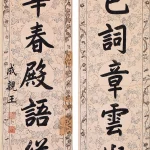 色詞章雲
華春殿語從
成親王